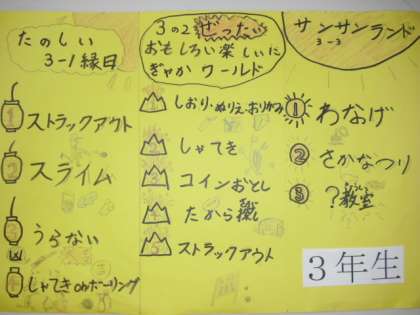 たのしい
3-1縁日
1 ストラックアウト
2 スライム
3 うらない
4 しゃてきorボーリング
3の2 ぜったい
おもしろい楽しいに
ぎやか ワールド
1 しおり・ぬりえ・おりがみ
2 しゃてき
3 コインおとし
4 たから探し
5 ストラックアウト
サンサンランド
3-3
1 わなげ
2 さかなつり
3 ?教室
3年生